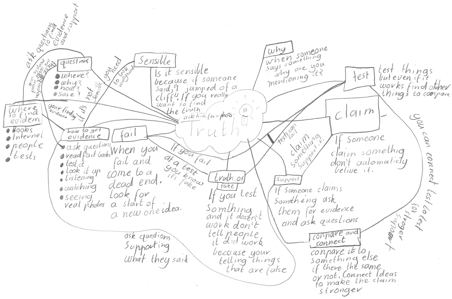 ask questions
question
where?
why?
how?
Safe?
Sensible
Is it sensible
because if someone
said "I jumped of a
cliff" if you really
want to find
the truth
Truth
why
when someone
says something
why are you
mentioning it?
test
test things
but even if it
works find other
things to compare
claim
If someone
claim something
don't automaticly
belive it.
Where
to find
evidence
books
Internet
people
tests
how to get
evidence
ask questions
read fact books
test it
look it up
listening
watching
seeing
real photos
fail
When you
fail and
come to a
dead end.
look for
a start of
a new one idea.
If you fail
at a test
you know
it's fake
truth or
fake
If you test
Something
and it doesn't
work don't
tell people
it did work
because your
telling things
that are false
Support
If someone claims
Something ask
them for evidence
and ask questions
compare and
connect
compare it to
something else
if there the same
or not. Connect Ideas
to make the claim
stronger
you can connect
ask questions
Supporting
What they said